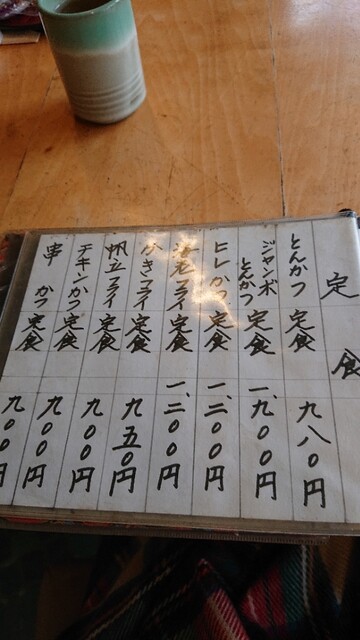 定食
とんかつ定食 九八〇円
ジャンボとんかつ定食 一、九〇〇円
ヒレかつ定食 一、二〇〇円
海老フライ定食 一、二〇〇円
かきフライ定食 九五〇円
帆立フライ定食 九〇〇円
チキンかつ定食 九〇〇円
串かつ定食 九〇〇円